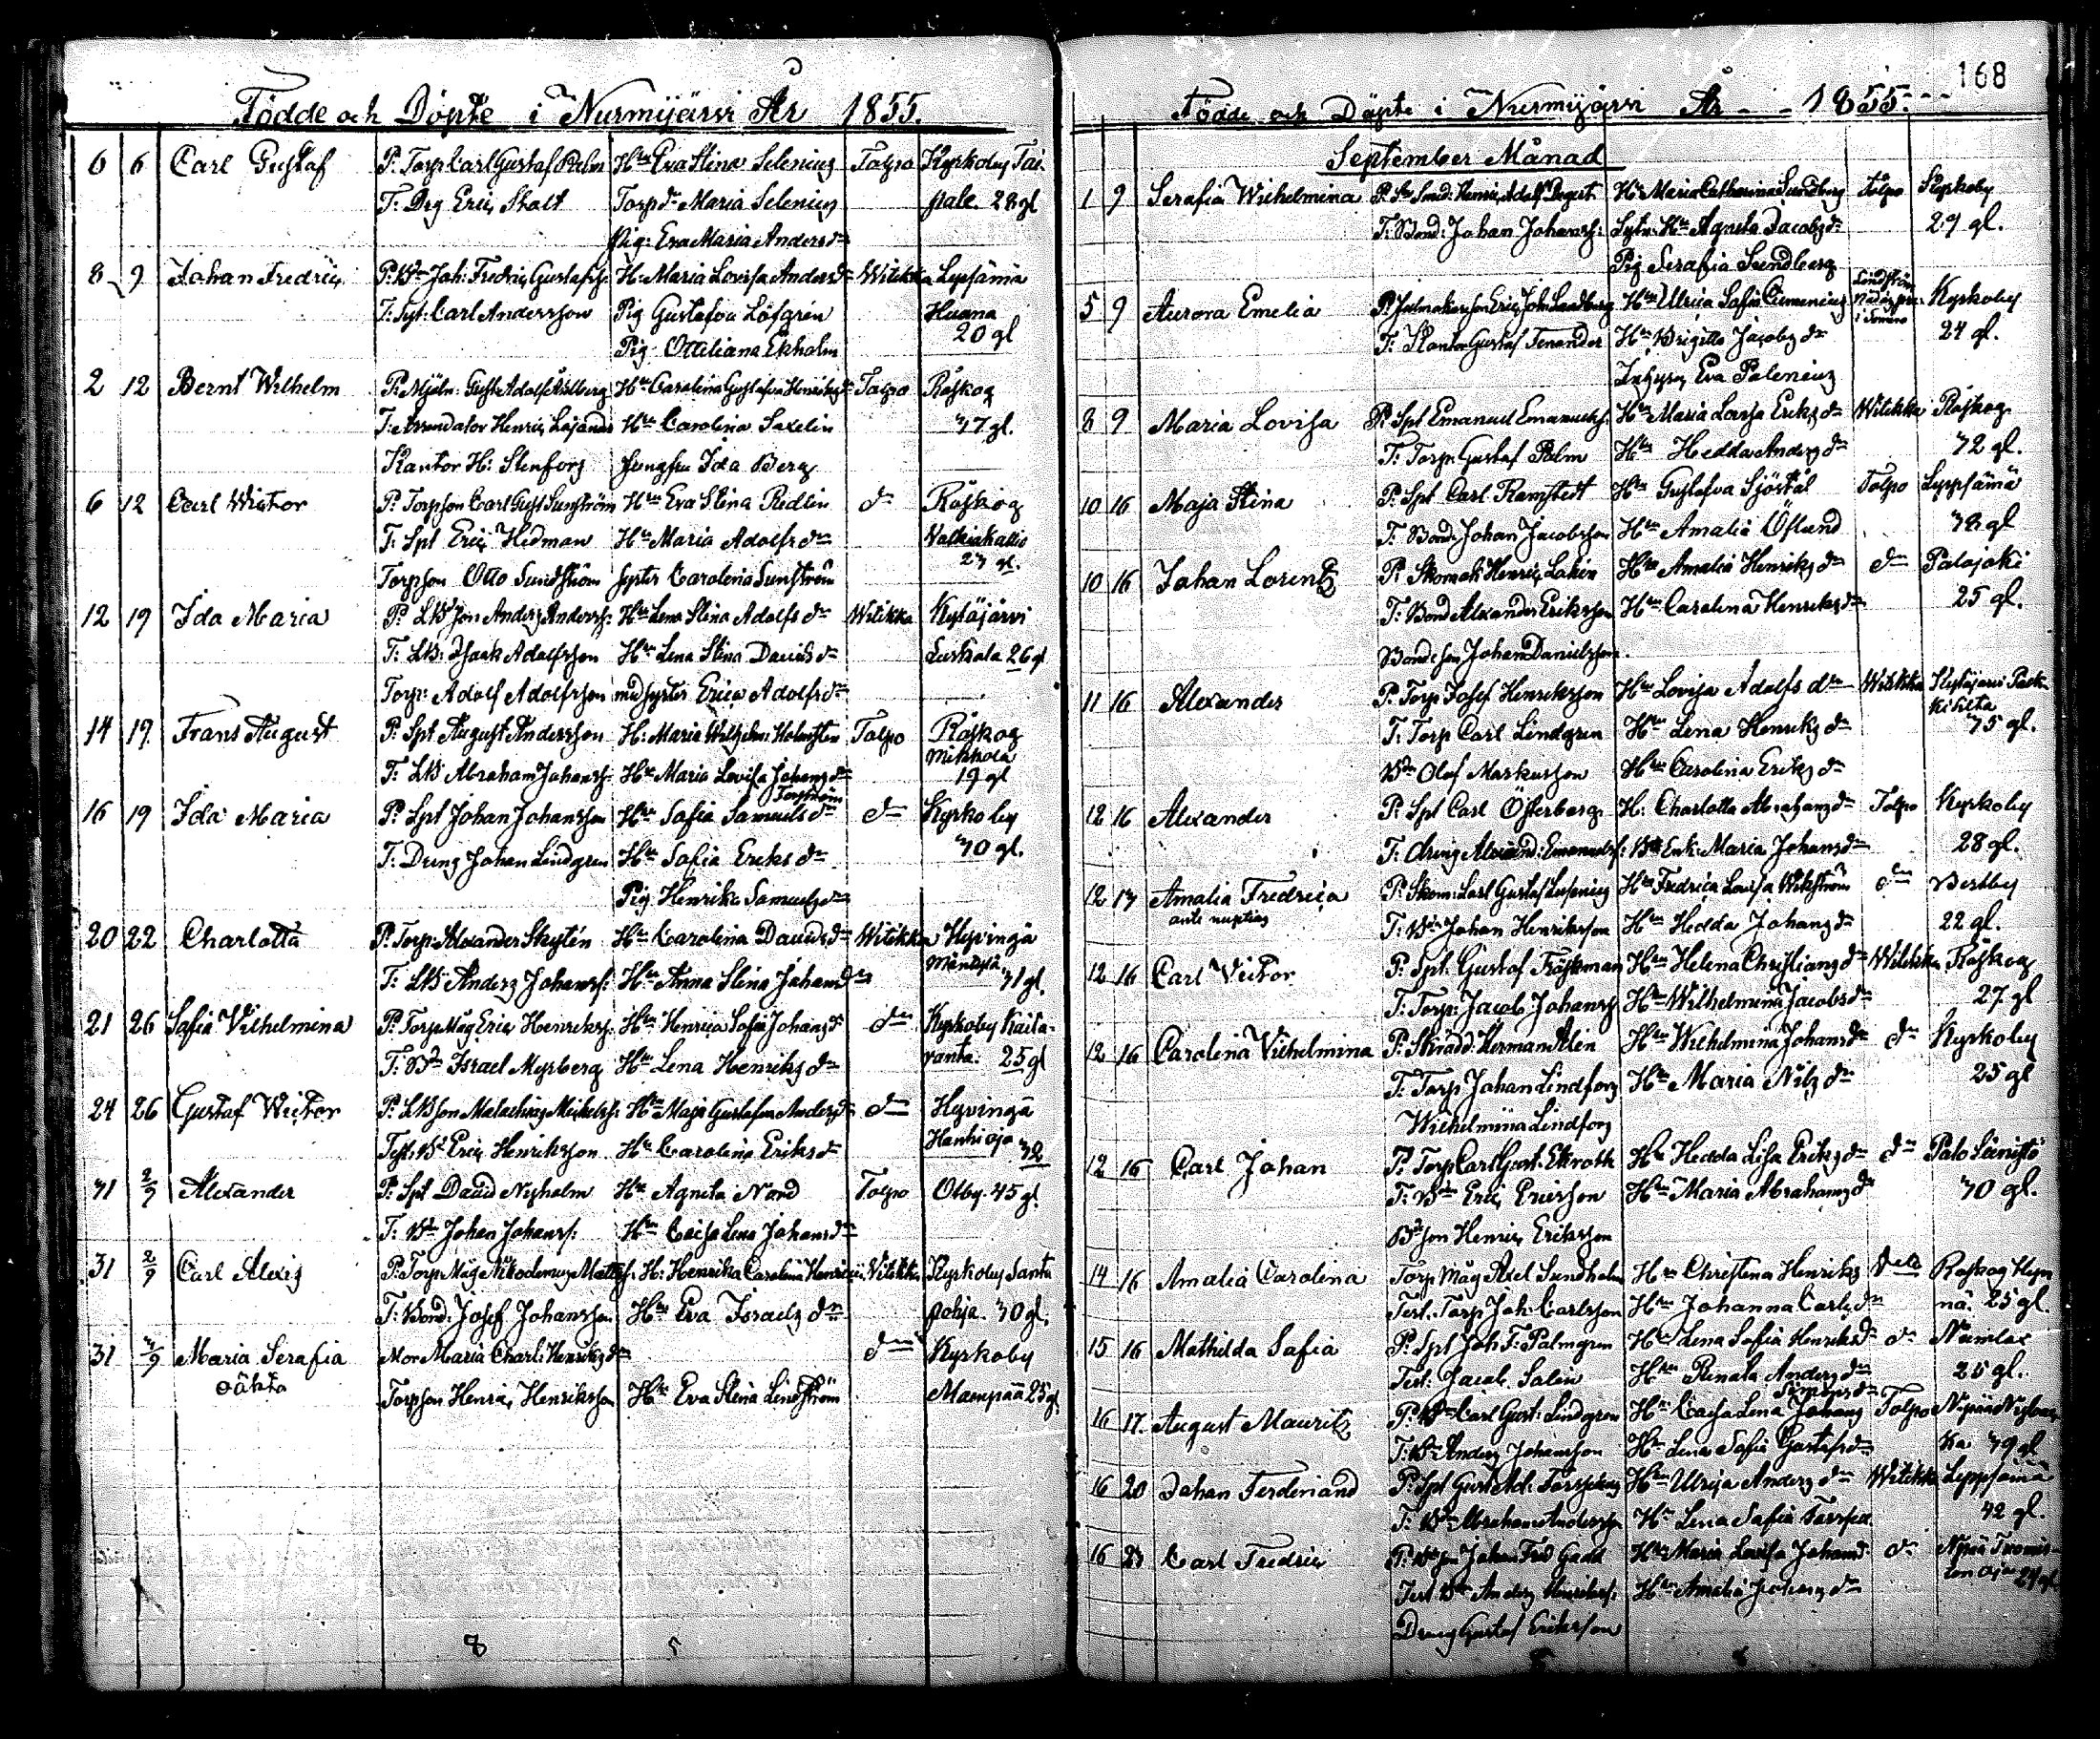 Födde och Döpte i Nurmijärvi År 1855.
6 6 Carl Gustaf P: Torp: Carl Gustaf Palm Hu Eva Stina Selenius Tolpo Kyrkoby Tai-
T: Drg Eric Stolt Torp dr Maria Selenius pale. 28 gl
Pig: Eva Maria Anders dr
8 9 Johan Fredric P: Bd Joh: Fredric Gustafss: H: Maria Lovisa Anders dr Witikka Lepsämä
T: Syt: Carl Andersson Pig Gustafva Löfgren Huana
Pig: Ottiliana Ekholm 20 gl
2 12 Bernt Wilhelm P: Mjöln: Gust Adolf Hu Carolina Gustafva Henriks dr Tolpo Röskog
T: Arrendator Henric Hu Carolina Saxelin 37 gl.
Kantor H: Stenfors Jungfru Ida Berg
6 12 Carl Wictor P: Torpson Carl Gust Sunström Hu Eva Stina Redlin do Röskog
T: Spt Eric Hedman Hu Maria Adolfs dr Valkiakallio
Torpson Otto Sundström Syster Carolina Sunström 23 gl.
12 19 Ida Maria P: LBson Anders Anderss: Hu Lena Stina Adolfs dr Witikka Kytäjärvi
T: LB: Isaak Adolfsson Hu Lena Stina Davids dr 26 gl
Torp: Adolf Adolfsson med syster Erica Adolfs dr
14 19 Frans August P: Spt August Andersson H: Maria Wilhelm: Holmsten Tolpo Röskog
Mikkola
T: LB Abraham Johanss: Hu Maria Lovisa Johans dr 19 gl
16 19 Ida Maria P: Spt Johan Johansson Hu Safia Samuels dr do Kyrkoby
T: Dreng Johan Lindgren Hu Sofia Eriks dr 30 gl.
Pig Henrika Samuels dr
20 22 Charlotta P: Torp: Alexander Skytén Hu Carolina Davids dr Witikka Hyvingä
T: LB Anders Johanss: Hu Anna Stina Johans dr 31 gl.
21 26 Safia Vilhelmina P: Torp Måg Eric Henrikss: Hu Henrica Sofia Johans dr do Kyrkoby Raita-
T: Bd Israel Myrberg Hu Lena Henriks dr ranta. 25 gl
24 26 Gustaf Victor P: LBson Malachias Mickelss: Hu Maja Gustafva Anders dr do Hyvingä
Test: Bd Eric Henriksson Hu Carolina Eriks dr Hanhioja 32
31 2/9 Alexander P: Spt David Nyholm Hu Agneta Nord Tolpo Olby. 45 gl
T: Bd Johan Johanss: Hu Caisa Lena Johans dr
31 2/9 Carl Alexis P: Torp Måg Nikodemus Matts: H: Henrika Carolina Witikka Kyrkoby Santa
T: Bond: Josef Johansson Hu Eva Israels dr pohja. 30 gl.
31 2/9 Maria Serafia Mor Maria Charl: Henriks dr do Kyrkoby
oäkta Torpson Henric Henriksson Hu Eva Stina Lindström 25 gl
8 5
168
Födde och Döpte i Nurmijärvi År 1855.
September Månad
1 9 Serafia Wilhelmina P: Smed: Henric Adolf Hu Maria Catharina Sundberg Tolpo Kyrkoby
T: Bond: Johan Johanss: Sytn: Hu Agneta Jacobs dr 29 gl.
Pig Serafia Sundberg
5 9 Aurora Emelia P: Eric Joh: Sandberg Hu Ulrica Safia Kyrkoby
T: Kantor Gustaf Hu Brigitta Jacobs dr 24 gl.
Eva Palenius
8 9 Maria Lovisa P: Spt Emanuel Emanuelss: Hu Maria Lovisa Eriks dr Witikka Röskog
T: Torp: Gustaf Palm Hu Hedda Anders dr 32 gl.
10 16 Maja Stina P: Spt Carl Ramstedt Hu Gustafva Sjöstål Tolpo Leppsämä
T: Bond: Johan Jacobsson Hu Amalia Öflund 38 gl
10 16 Johan Lorentz P: Skomak: Henric Hu Amalia Henriks dr do Palojoki
T: Bond Alexander Eriksson Hu Carolina Henriks dr 25 gl.
Bondeson Johan Danielsson.
11 16 Alexander P: Torp Josef Henriksson Hu Lovisa Adolfs dr Witikka Kytäjärvi
T: Torp Carl Lindgren Hu Lena Henriks dr 35 gl.
Bd Olof Markusson Hu Carolina Eriks dr
12 16 Alexander P: Spt Carl Österberg H: Charlotta Abrahams dr Tolpo Kyrkoby
T: dreng Alexand: Emanuelss: Bd Enk: Maria Johans dr 28 gl.
12 17 Amalia Fredrica P: Skom: Carl Gustaf Hu Fredrica Lovisa Wikström do Vestby
ante nuptias T: Bd Johan Henriksson Hu Hedda Johans dr 22 gl.
12 16 Carl Victor P: Spt: Gustaf Hu Helena Christians dr Witikka Röskog
T: Torp: Jacob Johanss: Hu Wilhelmina Jacobs dr 27 gl
12 16 Carolina Vilhelmina P: Skradd: Herman Alén Hu Wilhelmina Johans dr do Kyrkoby
T: Torp Johan Lindfors Hu Maria Nils dr 25 gl
Wilhelmina Lindfors
12 16 Carl Johan P: Torp Carl Gust: Ekroth Hu Hedda Lisa Eriks dr do Palo
T: Bd Eric Ericsson Hu Maria Abrahams dr 30 gl.
Bdson Henric Eriksson
14 16 Amalia Carolina Torp Måg Axel Sundholm Hu Christina Henriks dito Röskog
Test: Torp Joh: Carlsson Hu Johanna Carls dr nä. 25 gl.
15 16 Mathilda Safia P: Spt Joh F: Palmgren Hu Lena Sofia Henriks dr do Numlax
Test: Jacob Salin Hu Renata Anders dr 25 gl.
Simons dr
16 17. August Mauritz P: Bd Carl Gust: Lindgren Hu Caisa Lena Johans Tolpo
T: Bd Anders Johansson Hu Lena Sofia Gustafs dr 39 gl
16 20 Johan Ferdinand P: Spt Gust Ad: Hu Ulrica Anders dr Witikka Leppsämä
T: Bd Abraham Andersson Hu Lena Safia 42 gl.
16 23 Carl Fredric P: Bdson Johan Fred Gadd Hu Maria Lovisa Johans dr do
Test Bd Anders Henrikss: Hu Amalia Johans dr 24 gl
Dreng Gustaf Eriksson
8 8